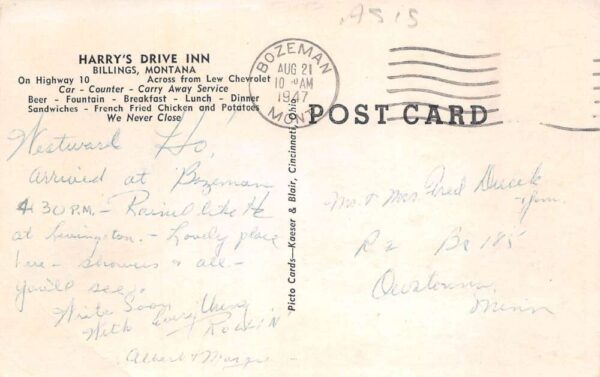 A515
HARRY'S DRIVE INN
BILLINGS, MONTANA
On Highway 10 Across from Lew Chevrolet
Car - Counter - Carry Away Service
Beer - Fountain - Breakfast - Lunch - Dinner
Sandwiches - French Fried Chicken and Potatoes
We Never Close
BOZEMAN
AUG 21
10 AM
1947
MONT.
POST CARD
Picto Cards—Kaeser & Blair, Cincinnati, Ohio
Westward Ho,
arrived at Bozeman
4 30 P.M. - Rained like He
at Livingston. - Lovely place
here - showers & all -
you'll see.
Write Soon
With Everything
Albert & Marge
Mr. & Mrs Fred
R 2 Bx 185
Owatonna,
Minn